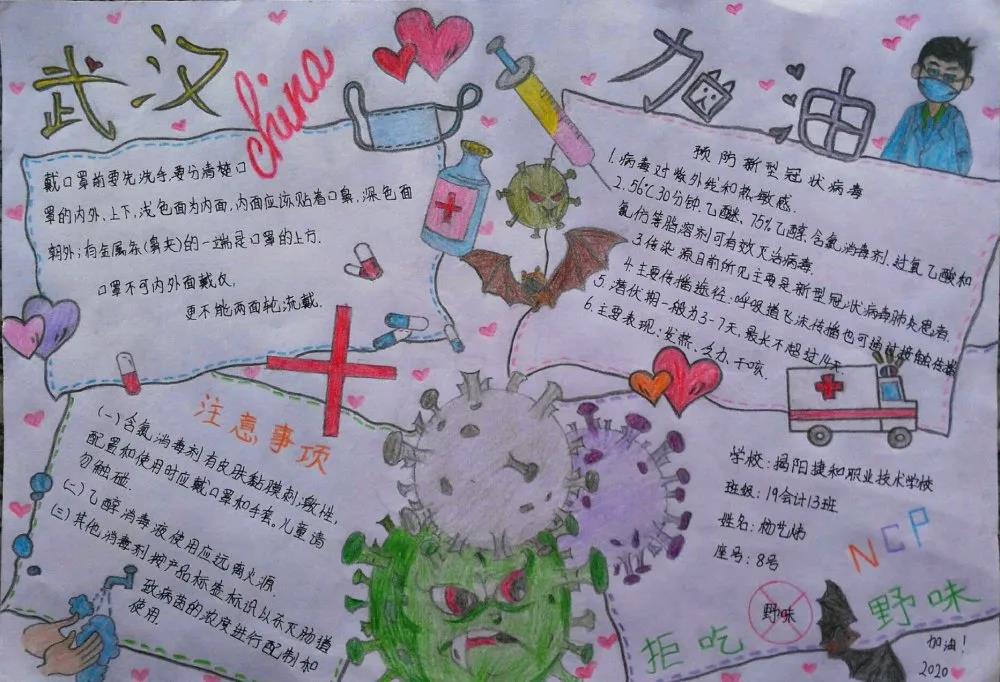 武汉
China
加油
戴口罩前要先洗手,要分清楚口
罩的内外、上下,浅色面为内面,内面应该贴着口鼻,深色面
朝外;有金属条(鼻夹)的一端是口罩的上方.
口罩不可内外面戴反,
更不能两面轮流戴.
预防新型冠状病毒
1.病毒对紫外线和热敏感.
2.56℃30分钟.乙醚、75%乙醇.含氯消毒剂.过氧乙酸和
氯仿等脂溶剂可有效灭活病毒.
3.传染源目前所见主要是新型冠状病毒肺炎患者.
4.主要传播途径:呼吸道飞沫传播也可通过接触传播
5.潜伏期一般为3-7天.最长不超过14天.
6.主要表现:发热、乏力、干咳.
注意事项
(一)含氯消毒剂有皮肤黏膜刺激性,
配置和使用时应戴口罩和手套。儿童请
勿触碰.
(二)乙醇消毒液使用应远离火源.
(三)其他消毒剂按产品标签标识以杀灭肠道
致病菌的浓度进行配制和
使用.
学校:揭阳捷和职业技术学校
班级:19会计13班
姓名:杨艺
座号:8号
NCP
野味
拒吃 野味
加油!
2020